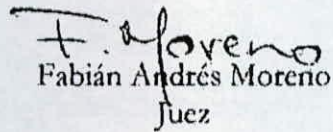 F. Moreno
Fabián Andrés Moreno
Juez